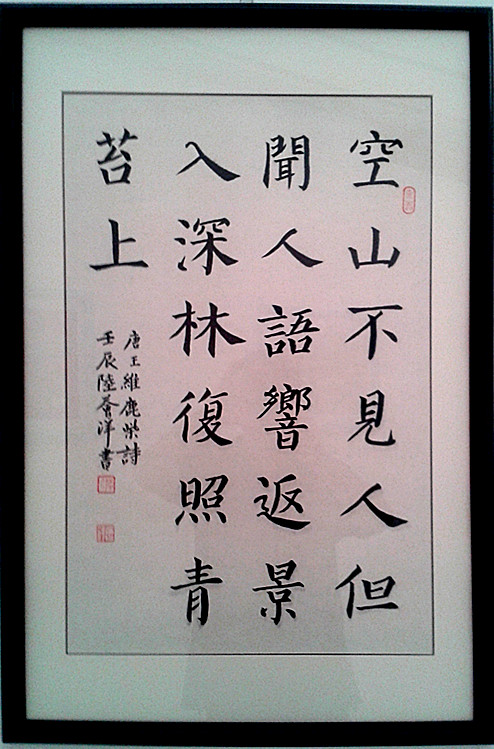 空山不見人但
聞人語響返景
入深林復照青
苔上
唐王維鹿柴詩
壬辰陸薈洋書